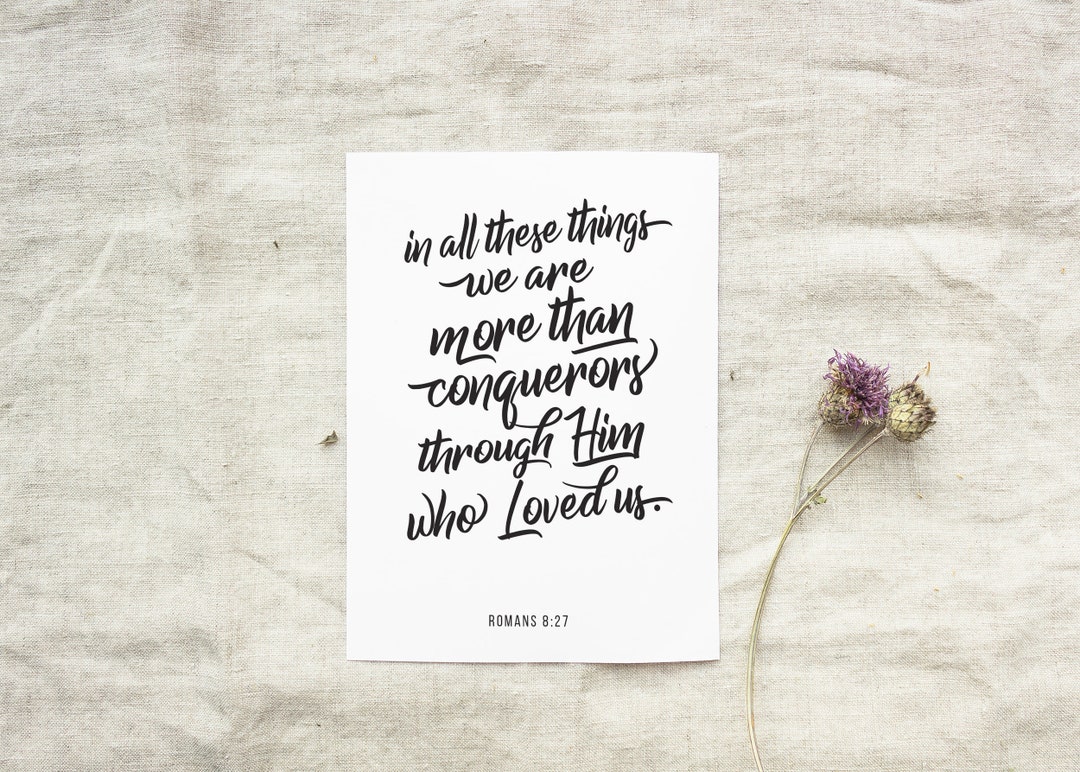 in all these things
we are
more than
conquerors
through Him
who Loved us.
ROMANS 8:27